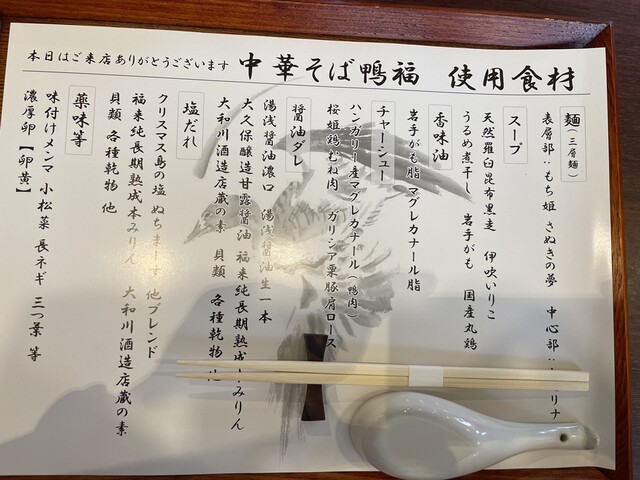 本日はご来店ありがとうございます 中華そば鴨福 使用食材
麺(三層麺)
表層部:もち姫 さぬきの夢 中心部: リナ
スープ
天然羅臼昆布黒走 伊吹いりこ
うるめ煮干し 岩手がも 国産丸鶏
香味油
岩手がも脂 マグレカナール脂
チャーシュー
ハンガリー産マグレカナール(鴨肉)
桜姫鶏むね肉 ガリシア栗豚肩ロース
醤油ダレ
湯浅醤油濃口 湯浅醤油生一本
大久保醸造甘露醤油 福来純長期熟成本みりん
大和川酒造店蔵の素 貝類 各種乾物 他
塩だれ
クリスマス島の塩 ぬちまーす 他ブレンド
福来純長期熟成本みりん 大和川酒造店蔵の素
貝類 各種乾物 他
薬味等
味付けメンマ 小松菜 長ネギ 三つ葉 等
濃厚卵【卵黄】